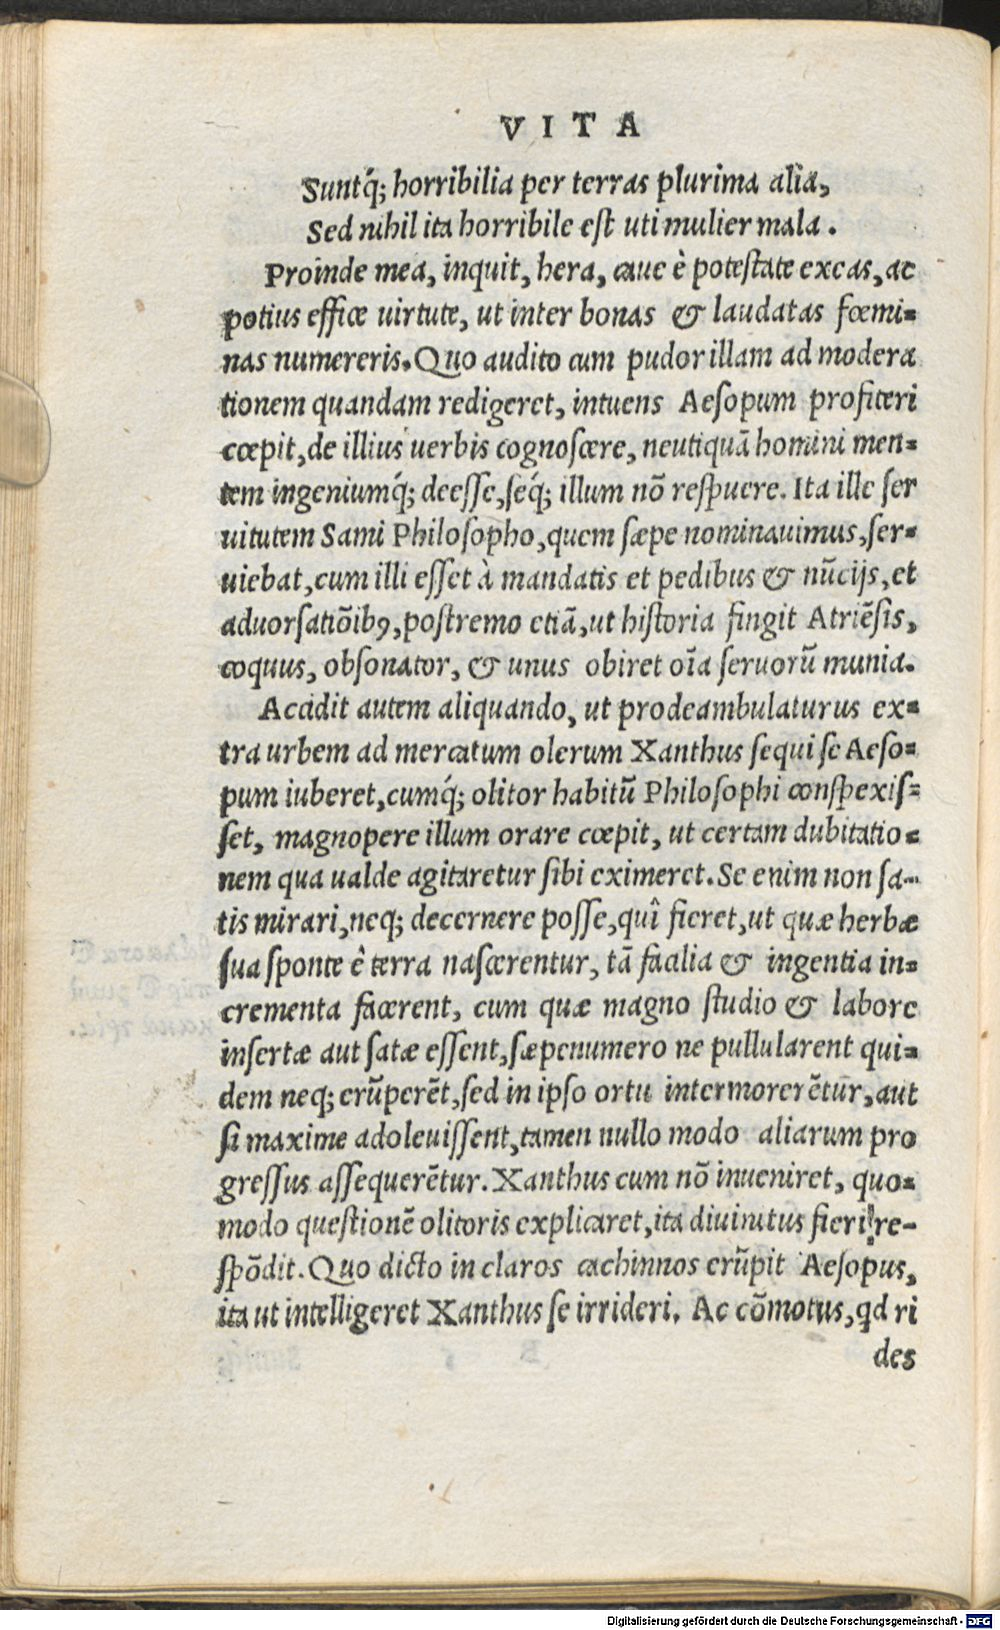 VITA
Suntq́; horribilia per terras plurima alia,
Sed nihil ita horribile est uti mulier mala.
Proinde mea, inquit, hera, caue è potestate excas, ac
potius effice uirtute, ut inter bonas & laudatas fœmi=
nas numereris. Quo audito cum pudor illam ad modera
tionem quandam redigeret, intuens Aesopum profiteri
cœpit, de illius uerbis cognoscere, neutiquā homini men=
tem ingeniumq́; deesse, seq́; illum nō respuere. Ita ille ser
uitutem Sami Philosopho, quem sæpe nominauimus, ser=
uiebat, cum illi esset à mandatis et pedibus & nūcijs, et
aduorsatiōibꝰ, postremo etiā, ut historia fingit Atriēsis,
coquus, obsonator, & unus obiret oīa seruorū munia.
Accidit autem aliquando, ut prodeambulaturus ex=
tra urbem ad mercatum olerum Xanthus sequi se Aeso=
pum iuberet, cumq́; olitor habitū Philosophi conspexis=
set, magnopere illum orare cœpit, ut certam dubitatio=
nem qua ualde agitaretur sibi eximeret. Se enim non sa=
tis mirari, neq; decernere posse, quî fieret, ut quæ herbæ
sua sponte è terra nascerentur, tā facilia & ingentia in=
crementa facerent, cum quæ magno studio & labore
insertæ aut satæ essent, sæpenumero ne pullularent qui=
dem neq; erūperēt, sed in ipso ortu intermorerētur, aut
si maxime adoleuissent, tamen nullo modo aliarum pro
gressus assequerētur. Xanthus cum nō inueniret, quo=
modo questionē olitoris explicaret, ita diuinitus fieri re=
spōdit. Quo dicto in claros cachinnos erūpit Aesopus,
ita ut intelligeret Xanthus se irrideri. Ac cōmotus, qd ri
des
Digitalisierung gefördert durch die Deutsche Forschungsgemeinschaft - DFG